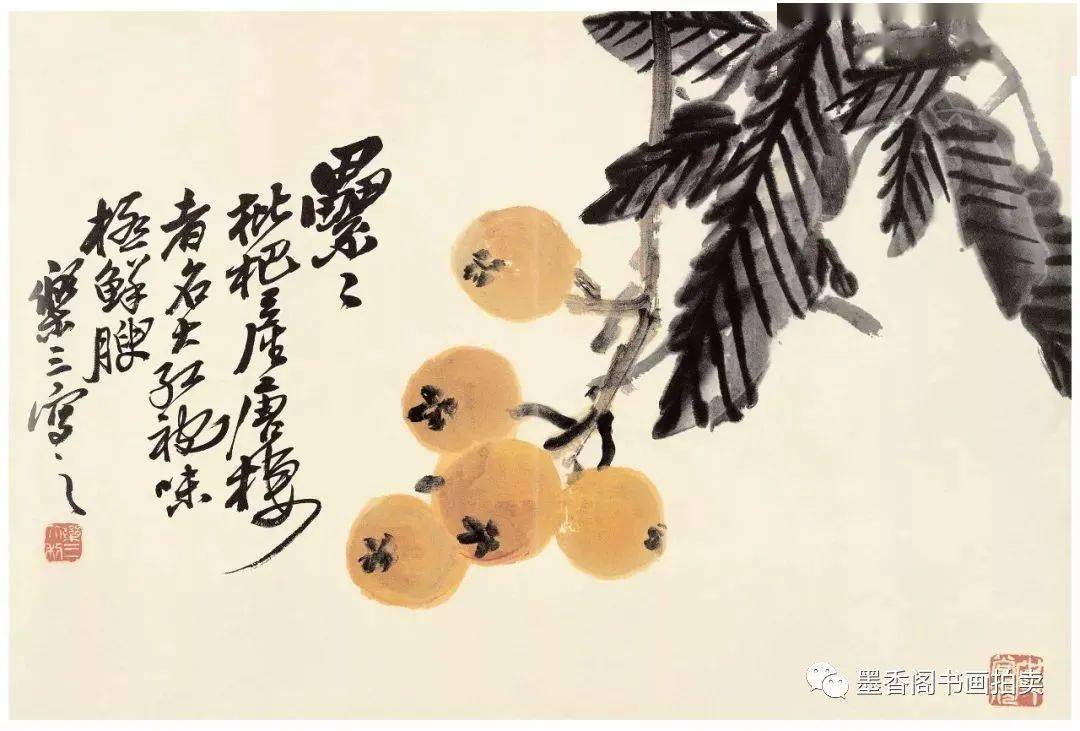 纍〻
枇杷产唐棲
者名大红袍味
極鲜腴
樂三寫之
墨香阁书画拍卖